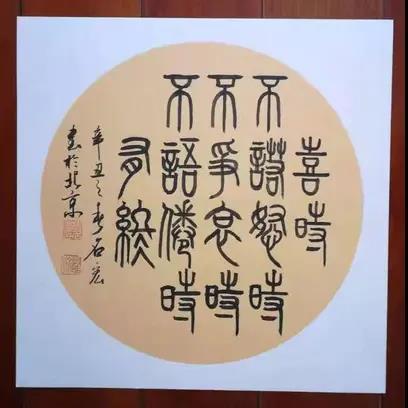 喜時
不諾怒時
不爭哀時
不語倦時
有續
辛丑之春石宏
書於北京